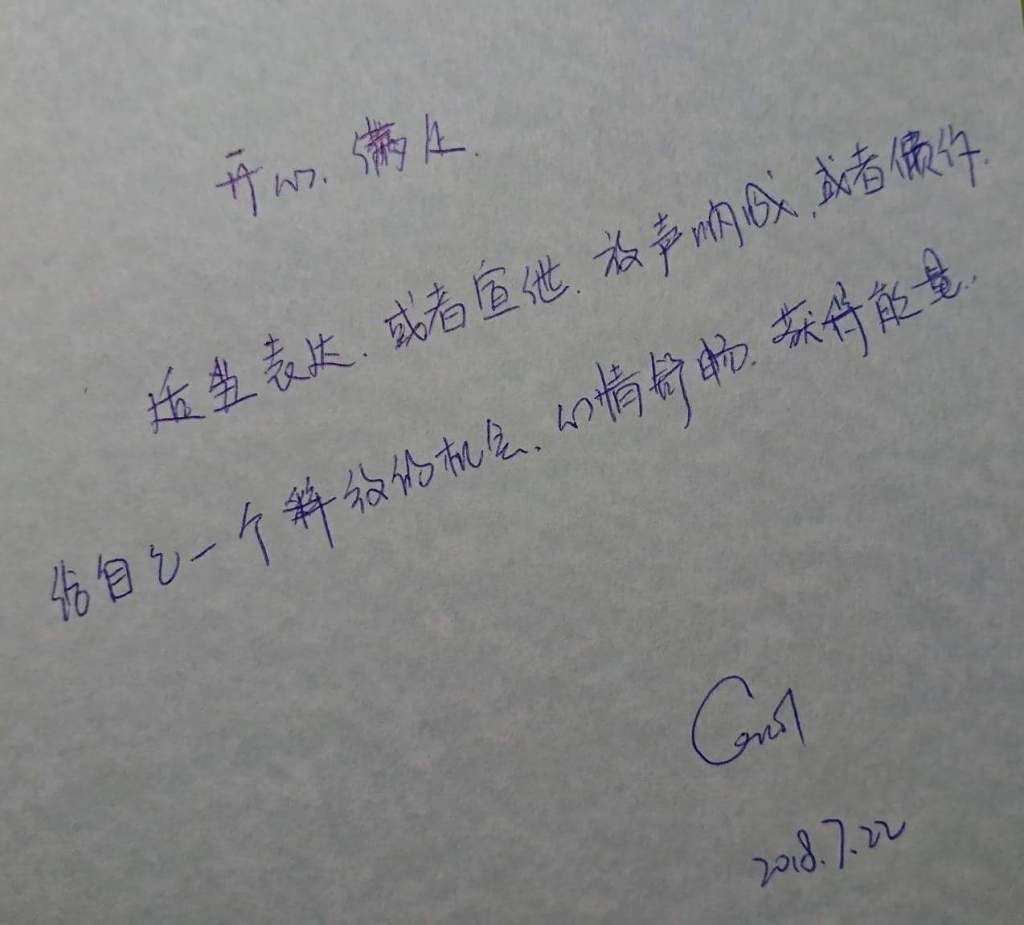 开心、满足.
适当表达.或者宣泄.放声呐喊,或者倾诉.
给自己一个释放的机会、心情舒畅.获得能量..
Carol
2018.7.22